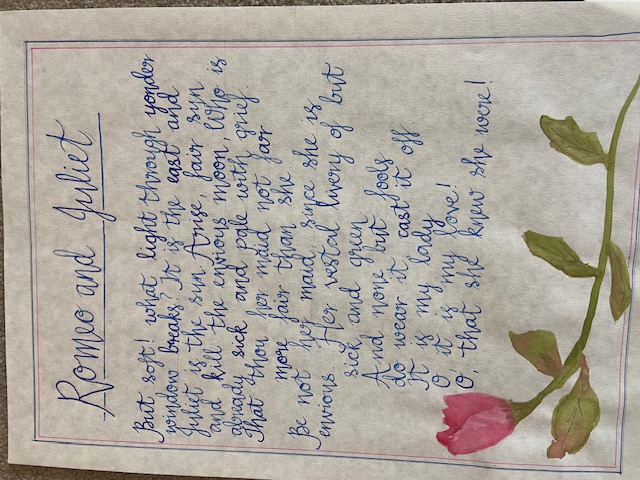 Romeo and Juliet
But soft! what light through yonder
window breaks? It is the east and
Juliet is the sun Arise, fair sun
and kill the envious moon, Who is
already sick and pale with grief
That thou her maid art far
more fair than she
Be not her maid, since she is
envious Her vestal livery of but
sick and green
And none but fools
do wear it, cast it off.
It is my lady
O it is my love!
O, that she knew she were!